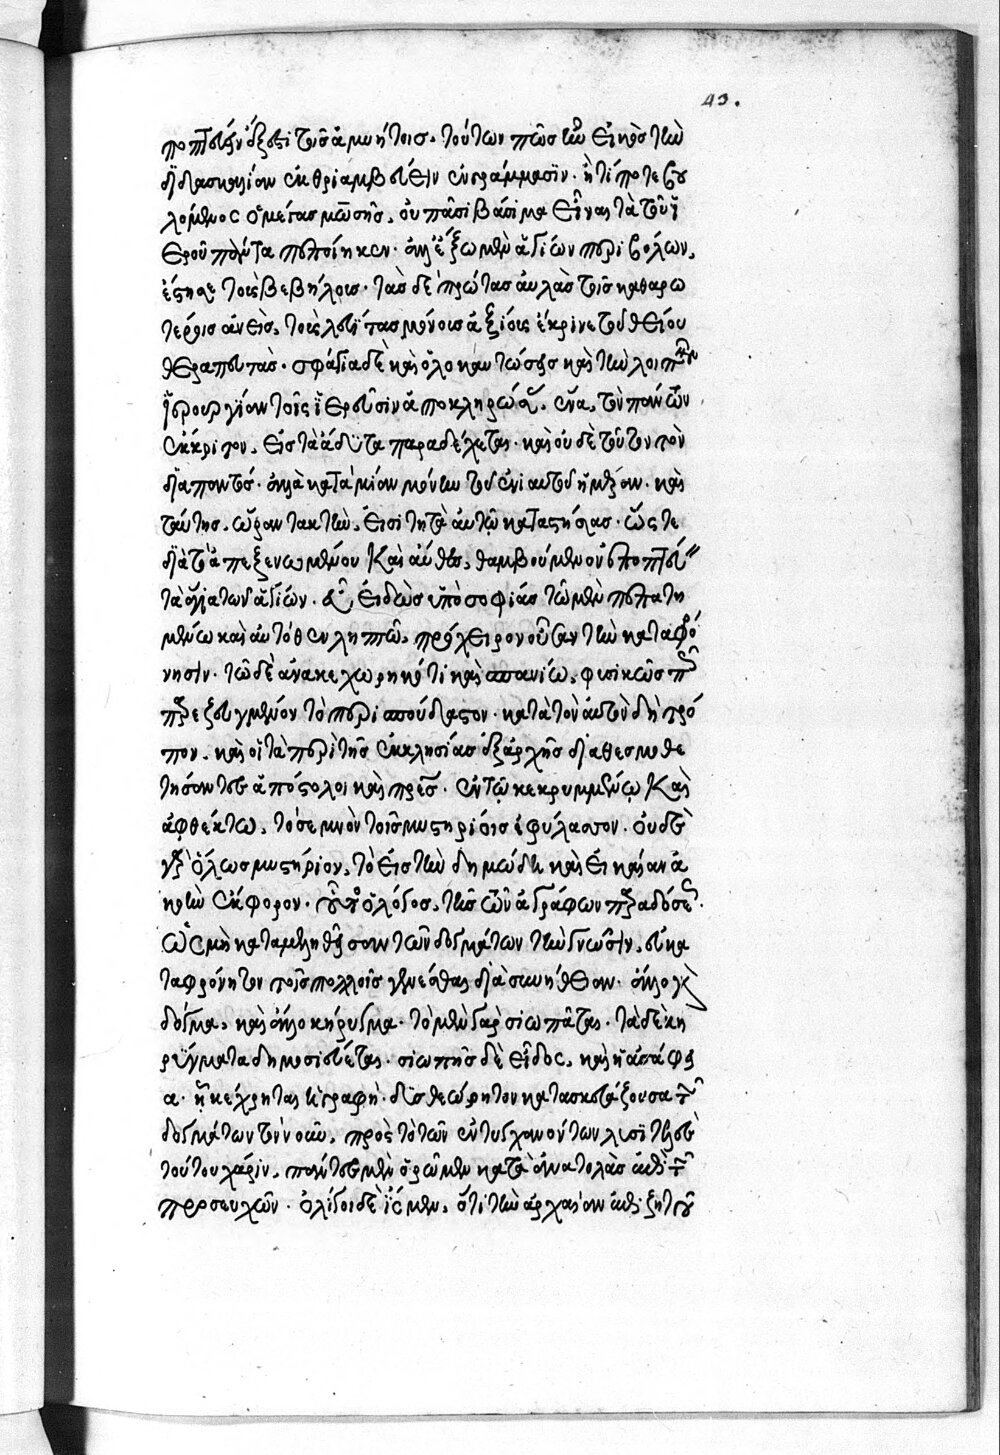 43.
ποπτεύειν ἔξεστι τοῖς ἀμυήτοις. τούτων πῶς ἂν εἰκὸς τὴν
διδασκαλίαν ἐκθριαμβεύειν ἐν γράμμασϊν. ἢ τί ποτε βου
λόμενος ὁ μέγας μωϋσῆς, οὐ πᾶσι βάσιμα εἶναι τὰ τοῦ ϊ
εροῦ πάντα πεποίηκεν. ἀλλ' ἔξω μὲν ἁγίων περιβόλων,
ἔστησε τοὺς βεβήλους. τὰς δὲ πρώτας αὐλὰς τοῖς καθαρω
τέροις ἀνεὶς, τοὺς λευΐτας μόνους ἀξίους ἔκρινε τοῦ θείου
θεραπευτάς. σφάγια δὲ καὶ ὁλοκαυτώσεις καὶ τὴν λοιπὴν
ϊερουργίαν τοῖς ϊερεῦσϊν ἀποκληρώσας, ἕνα, τὸν πάντων
ἔκκριτον, εἰς τὰ ἄδυτα παραδέχεται. καὶ οὐδὲ τοῦτον τὸν
διαπαντός. ἀλλὰ κατὰ μίαν μόνην τοῦ ἐνιαυτοῦ ἡμέραν. καὶ
ταύτης, ὥραν τακτὴν, εἰσιτητὰ αὐτῷ καταστήσας. ὥστε
διὰ τὸ ἀπεξενωμένον καὶ ἀηθες, θαμβούμενον ἐποπτεύειν
τὰ ἅγια τῶν ἁγίων. εὖ, εἰδὼς ὑπὸ σοφίας τῷ μὲν πεπατη
μένω καὶ αὐτόθεν ληπτῶ, πρόχειρον οὖσαν τὴν καταφρό
νησιν. τῶ δὲ ἀνακεχωρηκότι καὶ σπανίω, φυσικῶς πως
παρεζευγμένον τὸ περισπούδαστον. κατὰ τὸν αὐτὸν δὴ τρό
πον, καὶ οἱ τὰ περὶ τῆς ἐκκλησίας ἐξαρχῆς διαθεσμοθε
τήσαντες ἀπόστολοι καὶ πρες. ἐν τῷ κεκρυμμένῳ καὶ
ἀφθέκτω, τὸ σεμνὸν τοῖς μυστηρίοις ἐφύλασσον. οὐδὲ
γὰρ ὅλως μυστήριον, τὸ εἰς τὴν δημώδη καὶ εἰκαίαν ἀ
κοὴν ἔκφορον. οὗτος ὁ λόγος, τῆς τῶν ἀγράφων παραδόσεως.
ὡς μὴ καταμεληθεῖσαν τῶν δογμάτων τὴν γνῶσϊν, εὐκα
ταφρόνητον τοῖς πολλοῖς γενέσθαι διὰ συνήθειαν. ἄλλο γὰρ
δόγμα, καὶ ἄλλο κήρυγμα. τὸ μὲν γὰρ σιωπᾶται. τὰ δὲ κη
ρύγματα δημοσιεύεται. σιωπῆς δὲ εἶδος, καὶ ἡ ἀσάφει
α. ᾗ κέχρηται ἡ γραφὴ. δυσθεώρητον κατασκευάζουσα τῶν
δογμάτων τὸν νοῦν, πρὸς τὸ τῶν ἐντυγχανόντων λυσιτελὲς
τούτου χάριν, πάντες μὲν ὁρῶμεν κατὰ ἀνατολὰς ἐπὶ τῶν
προσευχῶν. ὀλίγοι δὲ ἴσμεν, ὅτι τὴν ἀρχαίαν ἐπιζητοῦ